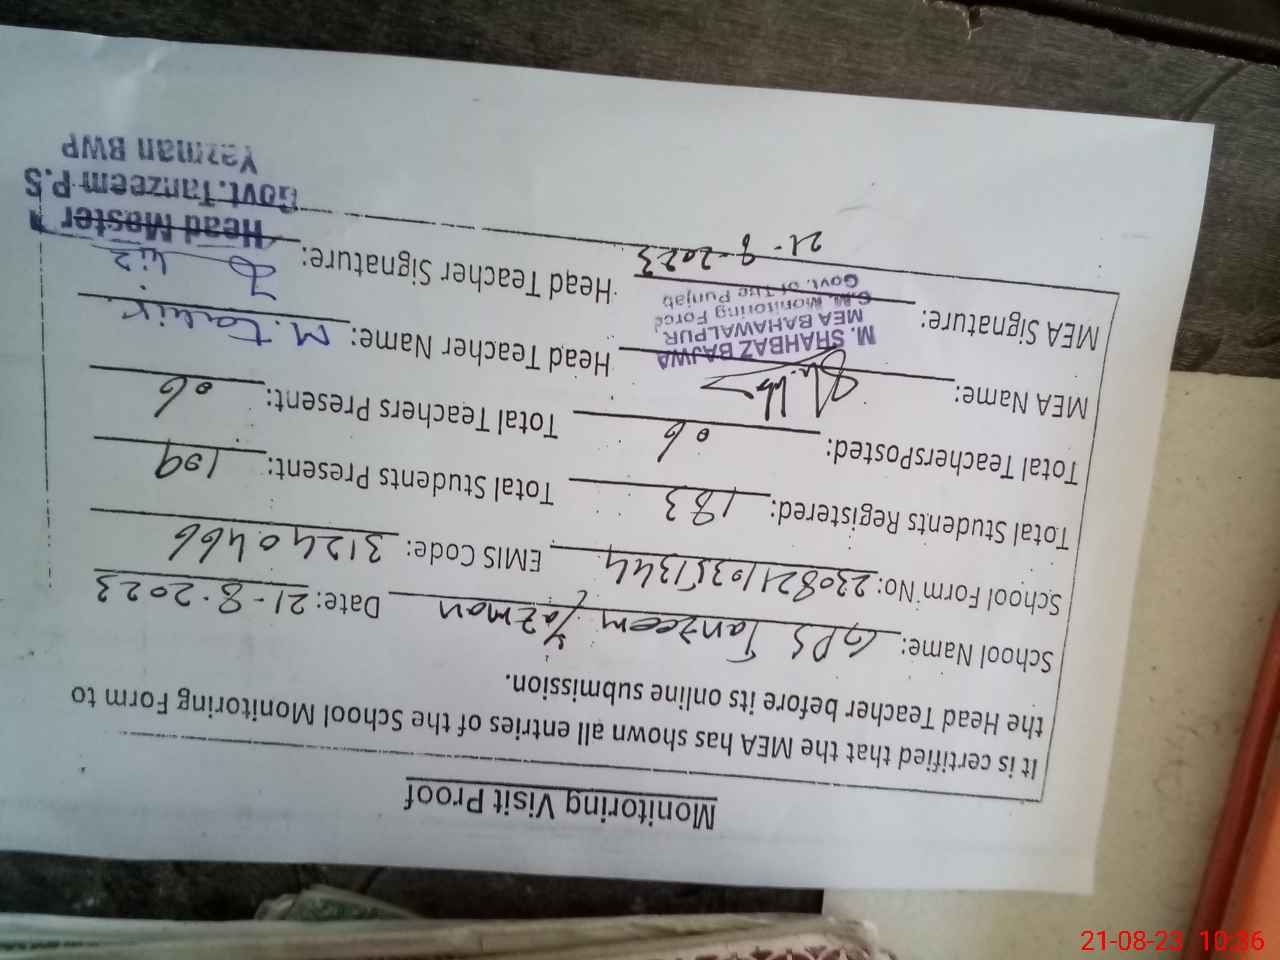 Monitoring Visit Proof
It is certified that the MEA has shown all entries of the School Monitoring Form to
the Head Teacher before its online submission.
School Name: GPS Tanzeem Yazman Date: 21-8-2023
School Form No: 23082110351344 EMIS Code: 31240466
Total Students Registered: 183 Total Students Present: 109
Total TeachersPosted: 06 Total Teachers Present: 06
MEA Name: Head Teacher Name: M. Tariq
M. SHAHBAZ BAJWA
MEA BAHAWALPUR
C.M. Monitoring Force
Govt. of The Punjab
MEA Signature: Head Teacher Signature:
21-8-2023
Head Master
Govt.Tanzeem P.S
Yazman BWP
21-08-23 10:36